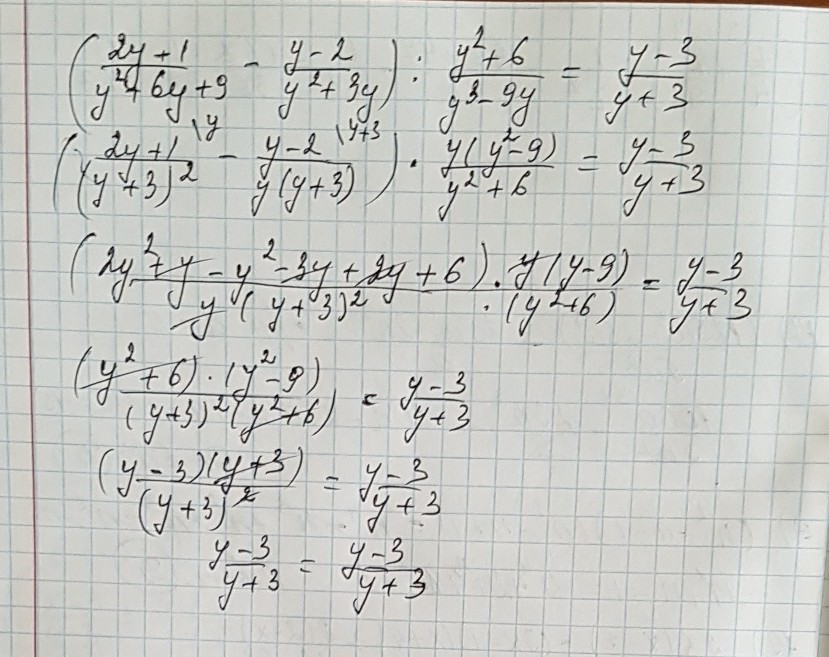 ((2y+1)/(y²+6y+9) - (y-2)/(y²+3y)) : (y²+6)/(y³-9y) = (y-3)/(y+3)
((2y+1)/(y+3)² \y - (y-2)/(y(y+3)) \y+3) · (y(y²-9))/(y²+6) = (y-3)/(y+3)
((2y²+y-y²-3y+2y+6)·y(y-9))/(y(y+3)²·(y²+6)) = (y-3)/(y+3)
((y²+6)·(y²-9))/((y+3)²(y²+6)) = (y-3)/(y+3)
((y-3)(y+3))/(y+3)² = (y-3)/(y+3)
(y-3)/(y+3) = (y-3)/(y+3)